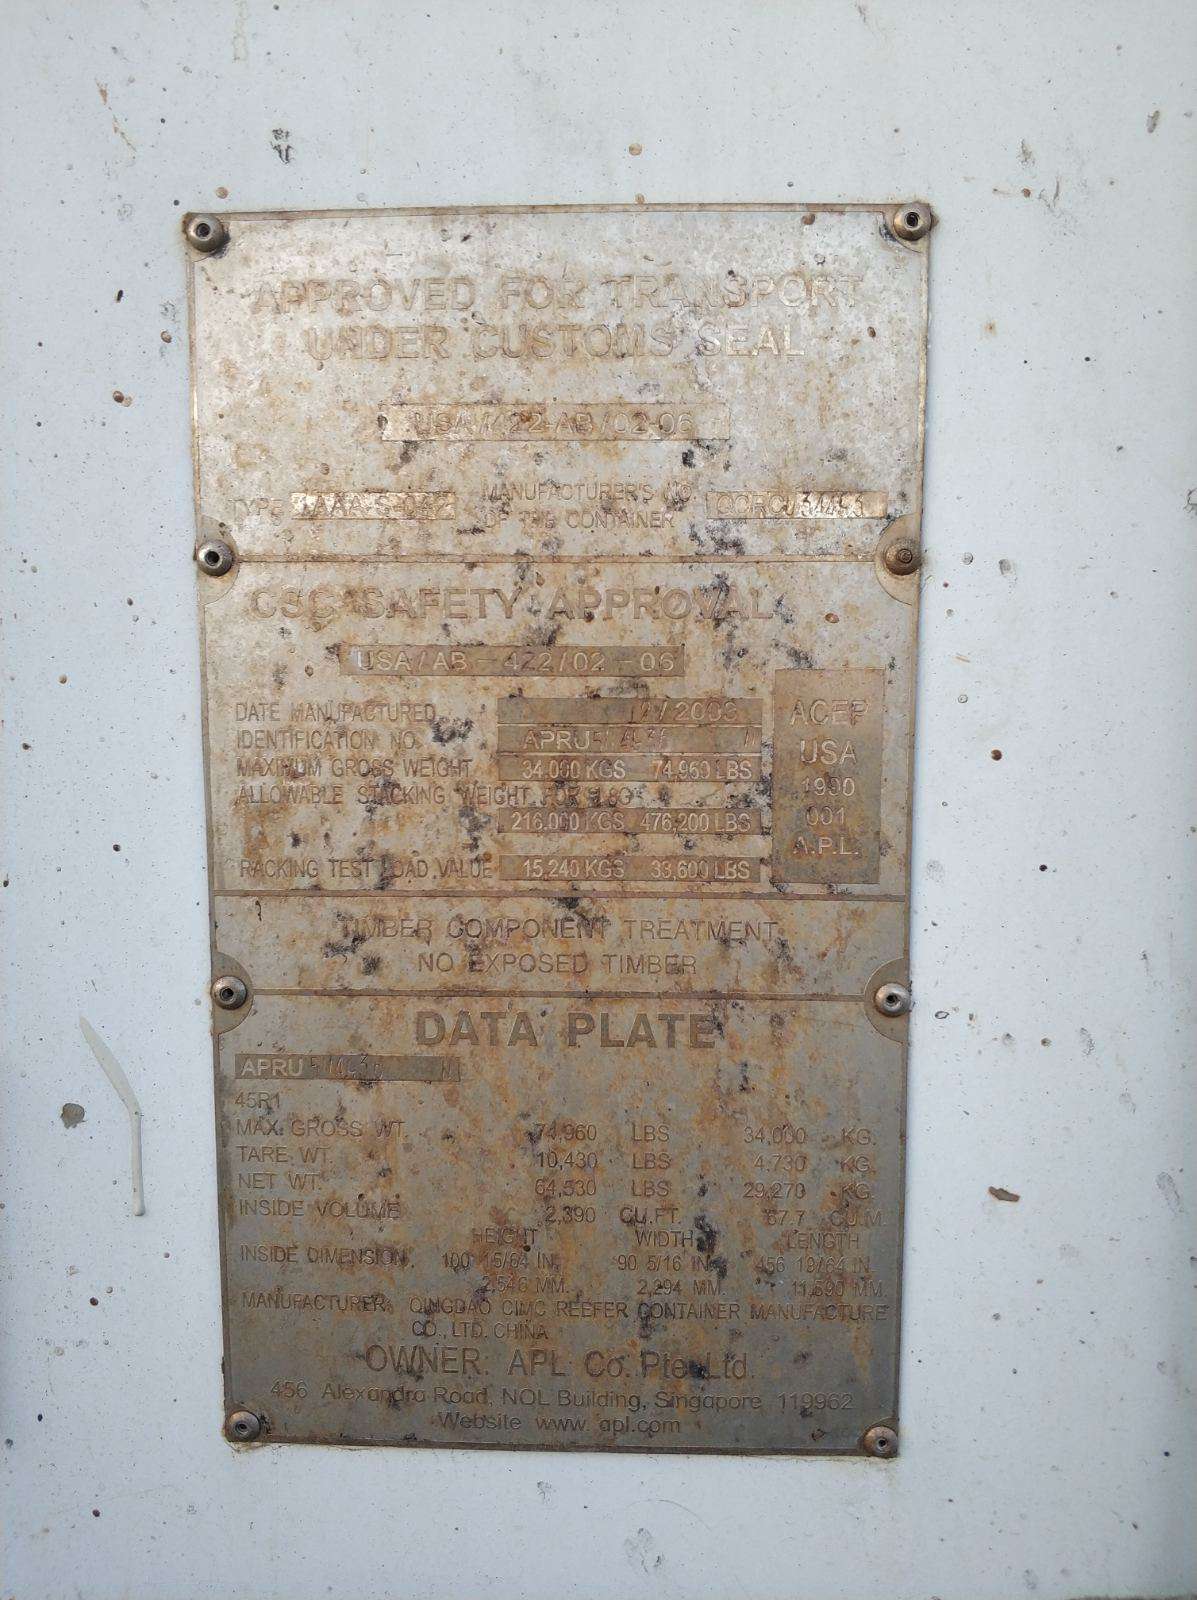 APPROVED FOR TRANSPORT
UNDER CUSTOMS SEAL
USA/422-AB/02-06
TYPE
MANUFACTURER'S NO.
OF THE CONTAINER
CSC SAFETY APPROVAL
USA/AB-422/02-06
DATE MANUFACTURED
IDENTIFICATION NO. APRU
MAXIMUM GROSS WEIGHT 34,000 KGS 74,960 LBS
ALLOWABLE STACKING WEIGHT FOR 1.8G
216,000 KGS 476,200 LBS
RACKING TEST LOAD VALUE 15,240 KGS 33,600 LBS
ACEP
USA
1990
001
A.P.L.
TIMBER COMPONENT TREATMENT
NO EXPOSED TIMBER
DATA PLATE
APRU
45R1
MAX. GROSS WT. 74,960 LBS 34,000 KG.
TARE WT. 10,430 LBS 4,730 KG.
NET WT. 64,530 LBS 29,270 KG.
INSIDE VOLUME 2,390 CU.FT. 67.7 CU.M.
HEIGHT WIDTH LENGTH
INSIDE DIMENSION. 100 15/64 IN. 90 5/16 IN. 456 19/64 IN.
2,546 MM. 2,294 MM. 11,590 MM.
MANUFACTURER: QINGDAO CIMC REEFER CONTAINER MANUFACTURE
CO., LTD. CHINA
OWNER: APL Co. Pte. Ltd.
456 Alexandra Road, NOL Building, Singapore 119962
Website www.apl.com